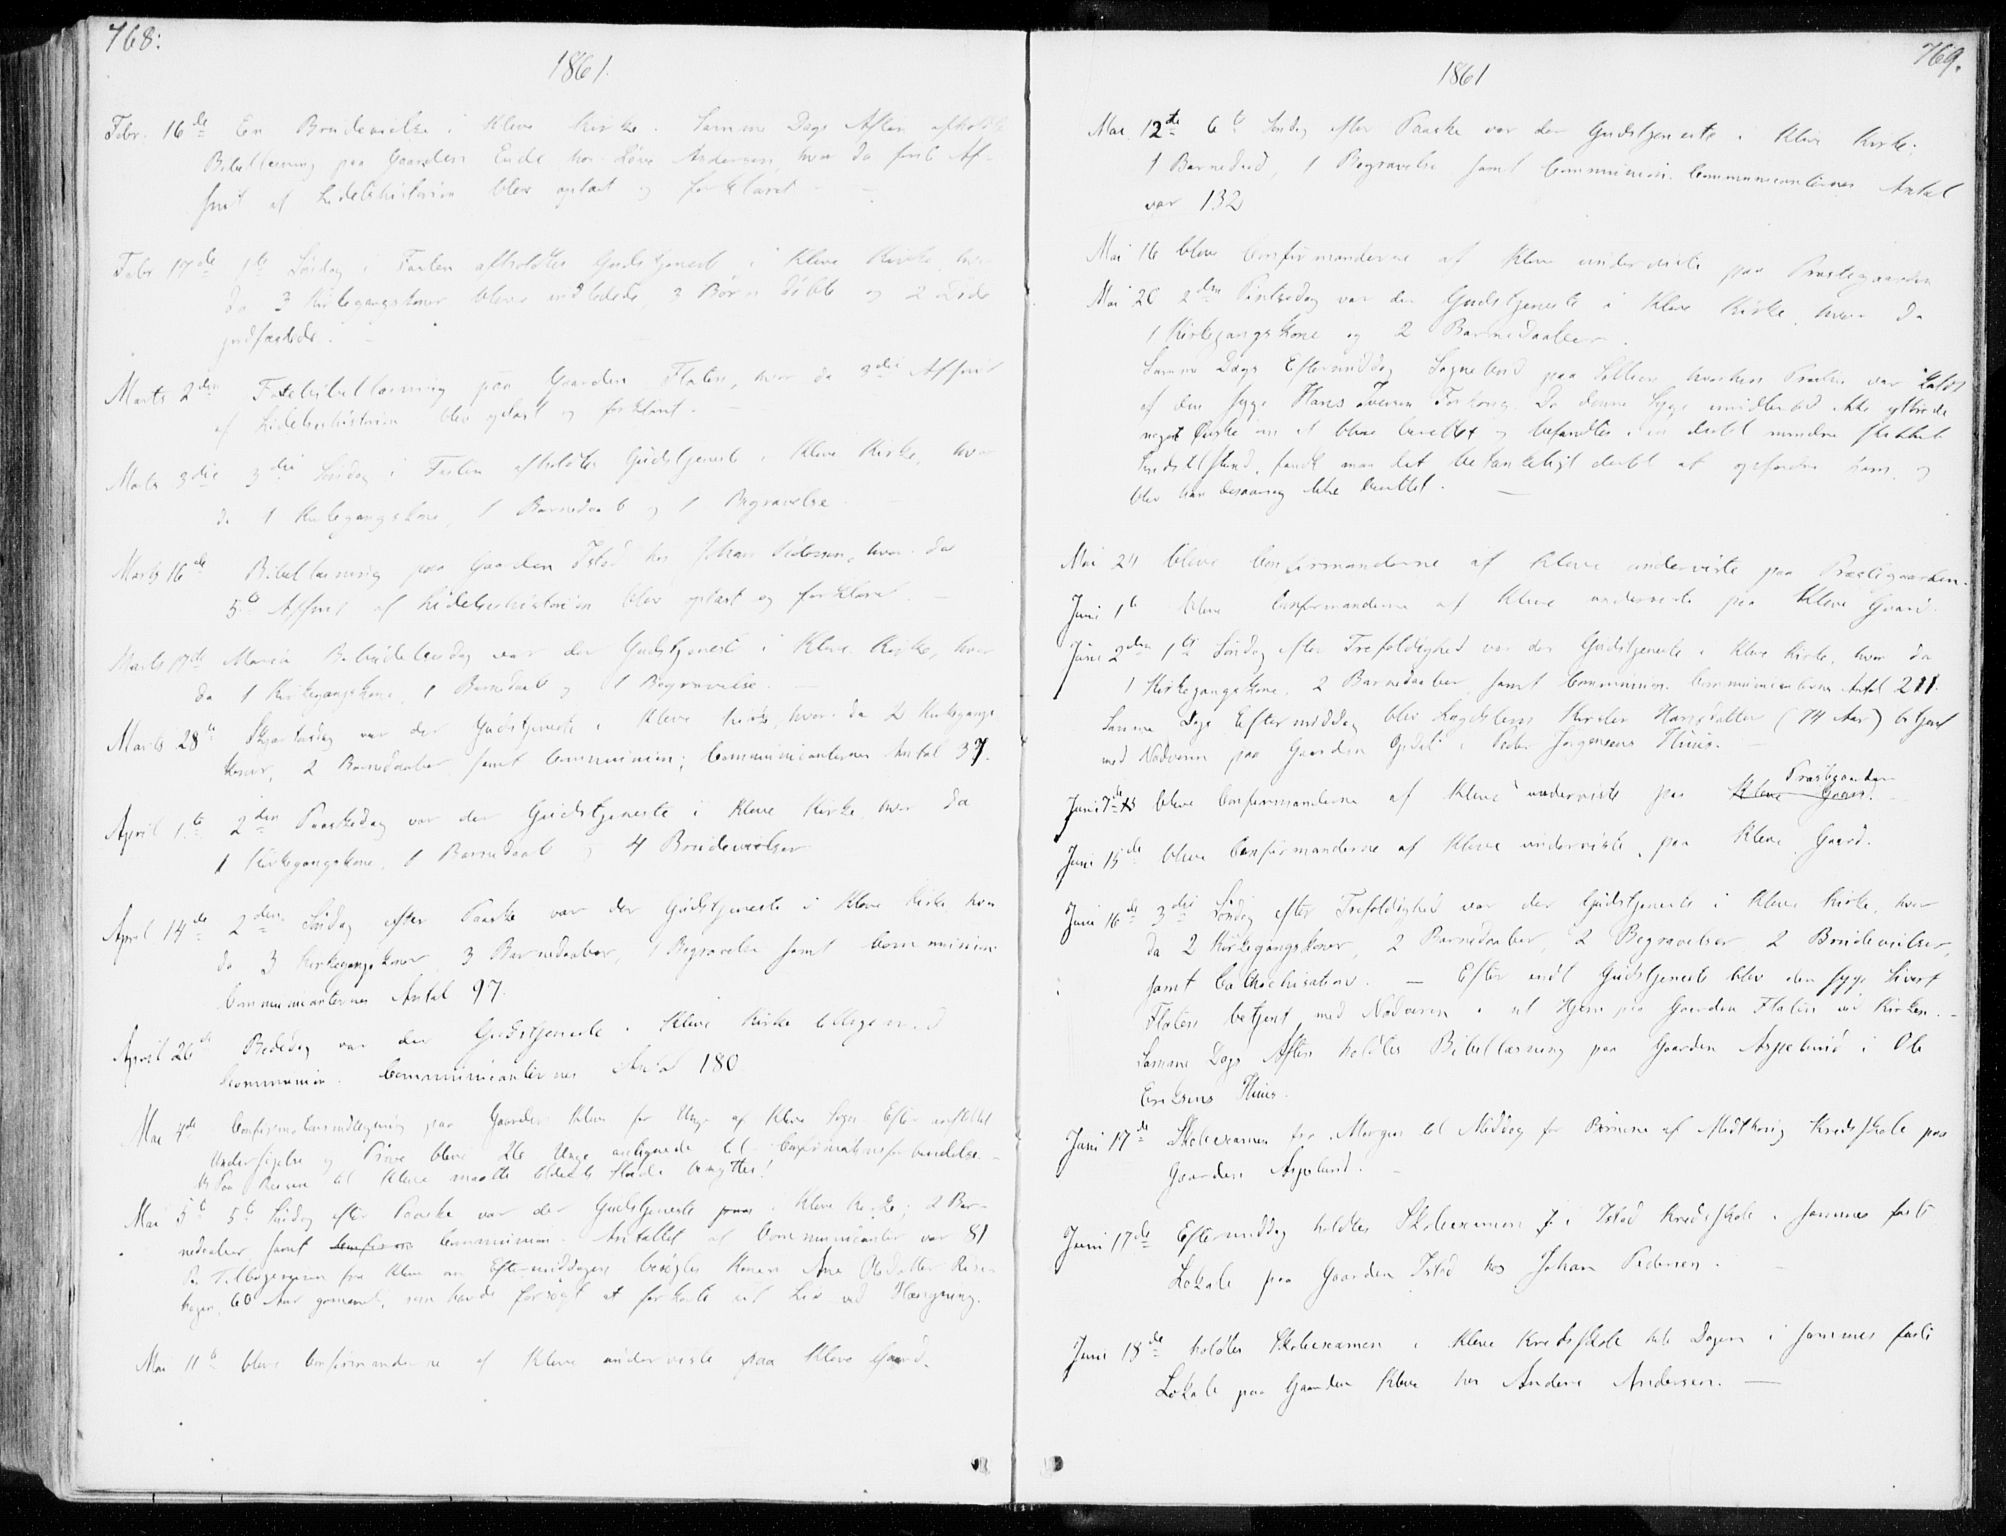 768.
1861.
Febr. 16de En Brudevielse i Kleve Kirke. Samme Dags Aften afholdtes
Bibellæsning paa Gaarden Ende hos Andersen, hvor da første Af-
snit af Lidelseshistorien blev oplæst og forklaret –
Febr 17de 1te Søndag i Fasten afholdtes Gudstjeneste i Kleve Kirke, hvor
da 3 Kirkegangskoner bleve indledede, 3 Børn døbte og 2 Døde
jordfæstede. –
Marts 2den Fastebibellæsning paa Gaarden Flaten, hvor da 3die Afsnit
af Lidelseshistorien blev oplæst og forklaret. –
Marts 3die 3die Søndag i Fasten afholdtes Gudstjeneste i Kleve Kirke, hvor
da 1 Kirkegangskone, 1 Barnedaab og 1 Begravelse. –
Marts 16de Bibellæsning paa Gaarden Istad hos Johan Pedersen, hvor da
5te Afsnit af Lidelseshistorien blev oplæst og forklaret. –
Marts 17de Mariæ Bebudelsesdag var der Gudstjeneste i Kleve Kirke, hvor
da 1 Kirkegangskone, 1 Barnedaab og 1 Begravelse. –
Marts 28de Skjærtorsdag var der Gudstjeneste i Kleve Kirke, hvor da 2 Kirkegangs-
koner, 2 Barnedaaber samt Communion; Communicanternes Antal 37.
April 1te 2den Paaskedag var der Gudstjeneste i Kleve Kirke, hvor da
1 Kirkegangskone, 1 Barnedaab og 4 Brudevielser
April 14de 2den Søndag efter Paaske var der Gudstjeneste i Kleve Kirke, hvor
da 3 Kirkegangskoner, 3 Barnedaaber, 1 Begravelse samt Communion
Communicanternes Antal 97.
April 26de Bededag var der Gudstjeneste i Kleve Kirke tilligemed
Kommunion. Communicanternes Antal 180
Mai 4de Confirmationsindtegning paa Gaarden Kleve for Unge af Kleve Sogn. Efter anstillet
Undersøgelse og Prøve bleve 26 Unge antegnede til Confirmationsforberedelse. –
NB Paa Reisen til Kleve maatte benyttes!
Mai 5te 5te Søndag efter Paaske var der Gudstjeneste paa i Kleve Kirke; 2 Bar-
nedaaber samt Communion. Antallet af Communicanter var 81
Paa Tilbagereisen fra Kleve om Eftermiddagen besøgtes Konen Ane Olsdatter
60 Aar gammel, som havde forsøgt at forkorte sit Liv ved Hængning.
Mai 11te bleve Confirmanderne af Kleve underviste paa Kleve Gaard.
769.
1861
Mai 12te 6te Søndag efter Paaske var der Gudstjeneste i Kleve Kirke;
1 Barnedaab, 1 Begravelse samt Communion. Communicanternes Antal
var 132
Mai 16 bleve Confirmanderne af Kleve underviste paa Præstegaarden
Mai 20 2den Pintsedag var der Gudstjeneste i Kleve Kirke, hvor da
1 Kirkegangskone og 2 Barnedaaber.
Samme Dags Eftermiddag Sognebud paa hvorhen Præsten var kaldt
af den syge Hans Iversen. Da denne Syge imidlertid ikke yttrede
noget Ønske om at blive berettet og befandtes i en deels mindre skikket
Sindstilstand, fandt man det betænkeligt dertil at opfordre ham, og
blev han ikke berettet. –
Mai 24 bleve Confirmanderne af Kleve underviste paa Præstegaarden.
Juni 1te bleve Confirmanderne af Kleve underviste paa Kleve Gaard.
Juni 2den 1te Søndag efter Trefoldighed var der Gudstjeneste i Kleve Kirke, hvor da
1 Kirkegangskone, 2 Barnedaaber samt Communion. Communicanternes Antal 211.
Samme Dags Eftermiddag blev Lægdslem Kirsten Hansdatter (74 Aar) betjent
med Nadveren paa Gaarden Opdal i Peder Jørgensens Huus. –
Juni 7de bleve Confirmanderne af Kleve underviste paa Kleve Gaard. Præstegaarden
Juni 15de bleve Confirmanderne af Kleve underviste paa Kleve Gaard.
Juni 16de 3die Søndag efter Trefoldighed var der Gudstjeneste i Kleve Kirke, hvor
da 2 Kirkegangskoner, 2 Barnedaaber, 2 Begravelser, 2 Brudevielser,
samt Catechisation. – Efter endt Gudstjeneste blev den syge Sivert
Flaten betjent med Nadveren i sit Hjem paa Gaarden Flaten ved Kirken. –
Samme Dags Aften holdtes Bibellæsning paa Gaarden Aspelund i Ole
Eriksens Huus.
Juni 17de Skoleexamen fra Morgen til Middag for Børnene af Midthoug Kredsskole paa
Gaarden Aspelund. –
Juni 17de Eftermiddag holdtes Skoleexamen i Istad Kredsskole i sammes faste
Lokale paa Gaarden Istad hos Johan Pedersen. –
Juni 18de holdtes Skoleexamen i Kleve Kredsskole hele Dagen i sammes faste
Lokale paa Gaarden Kleve hos Anders Andersen. –